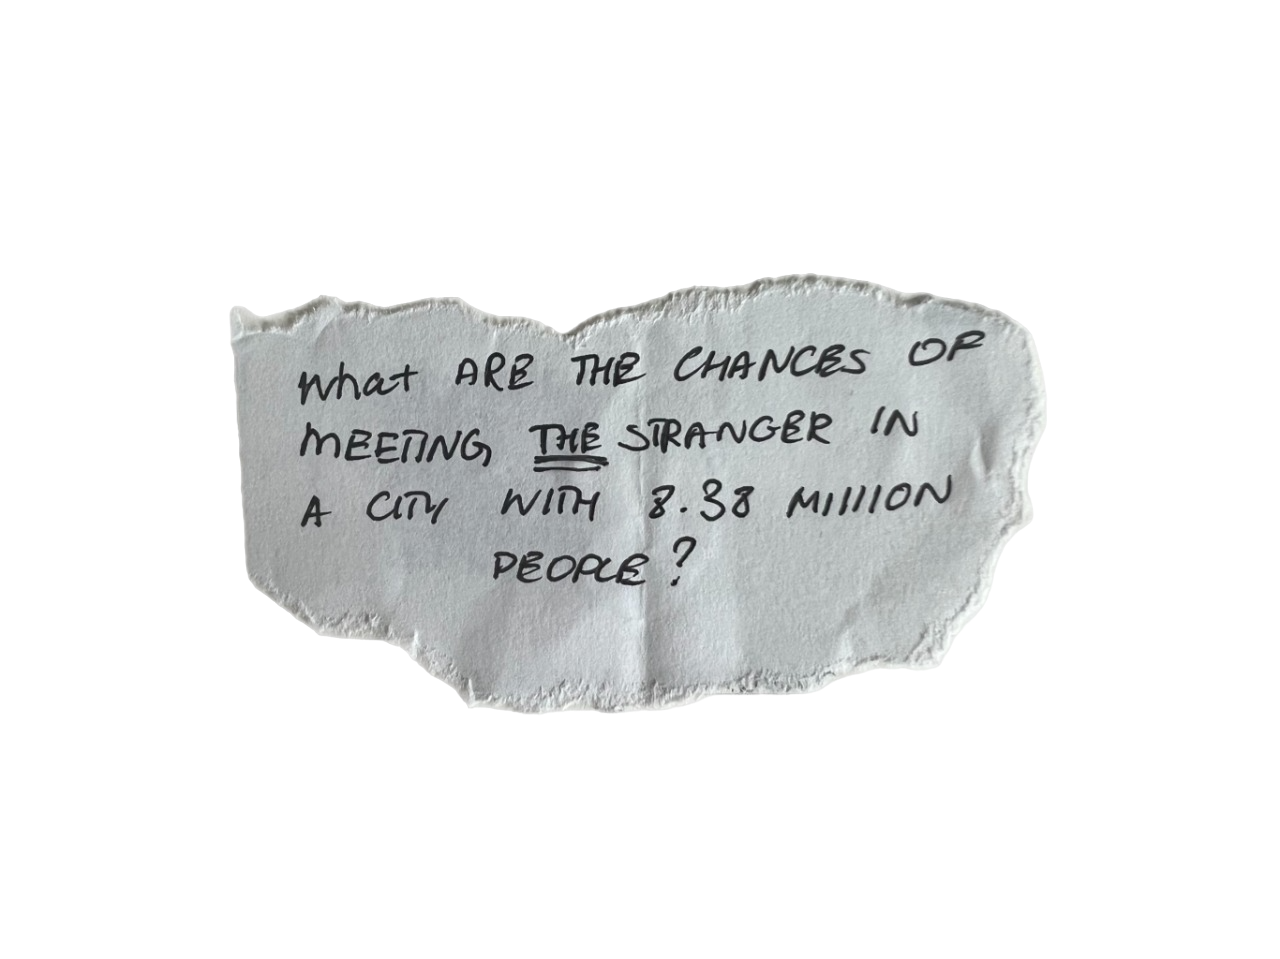 What ARE THE CHANCES OF
MEETING THE STRANGER IN
A CITY WITH 8.38 MILLION
PEOPLE?